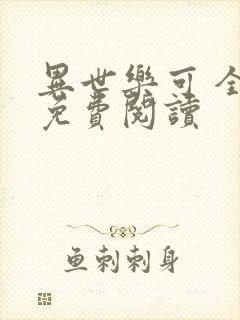 異世樂可 全
免費閱讀
鱼刺刺身